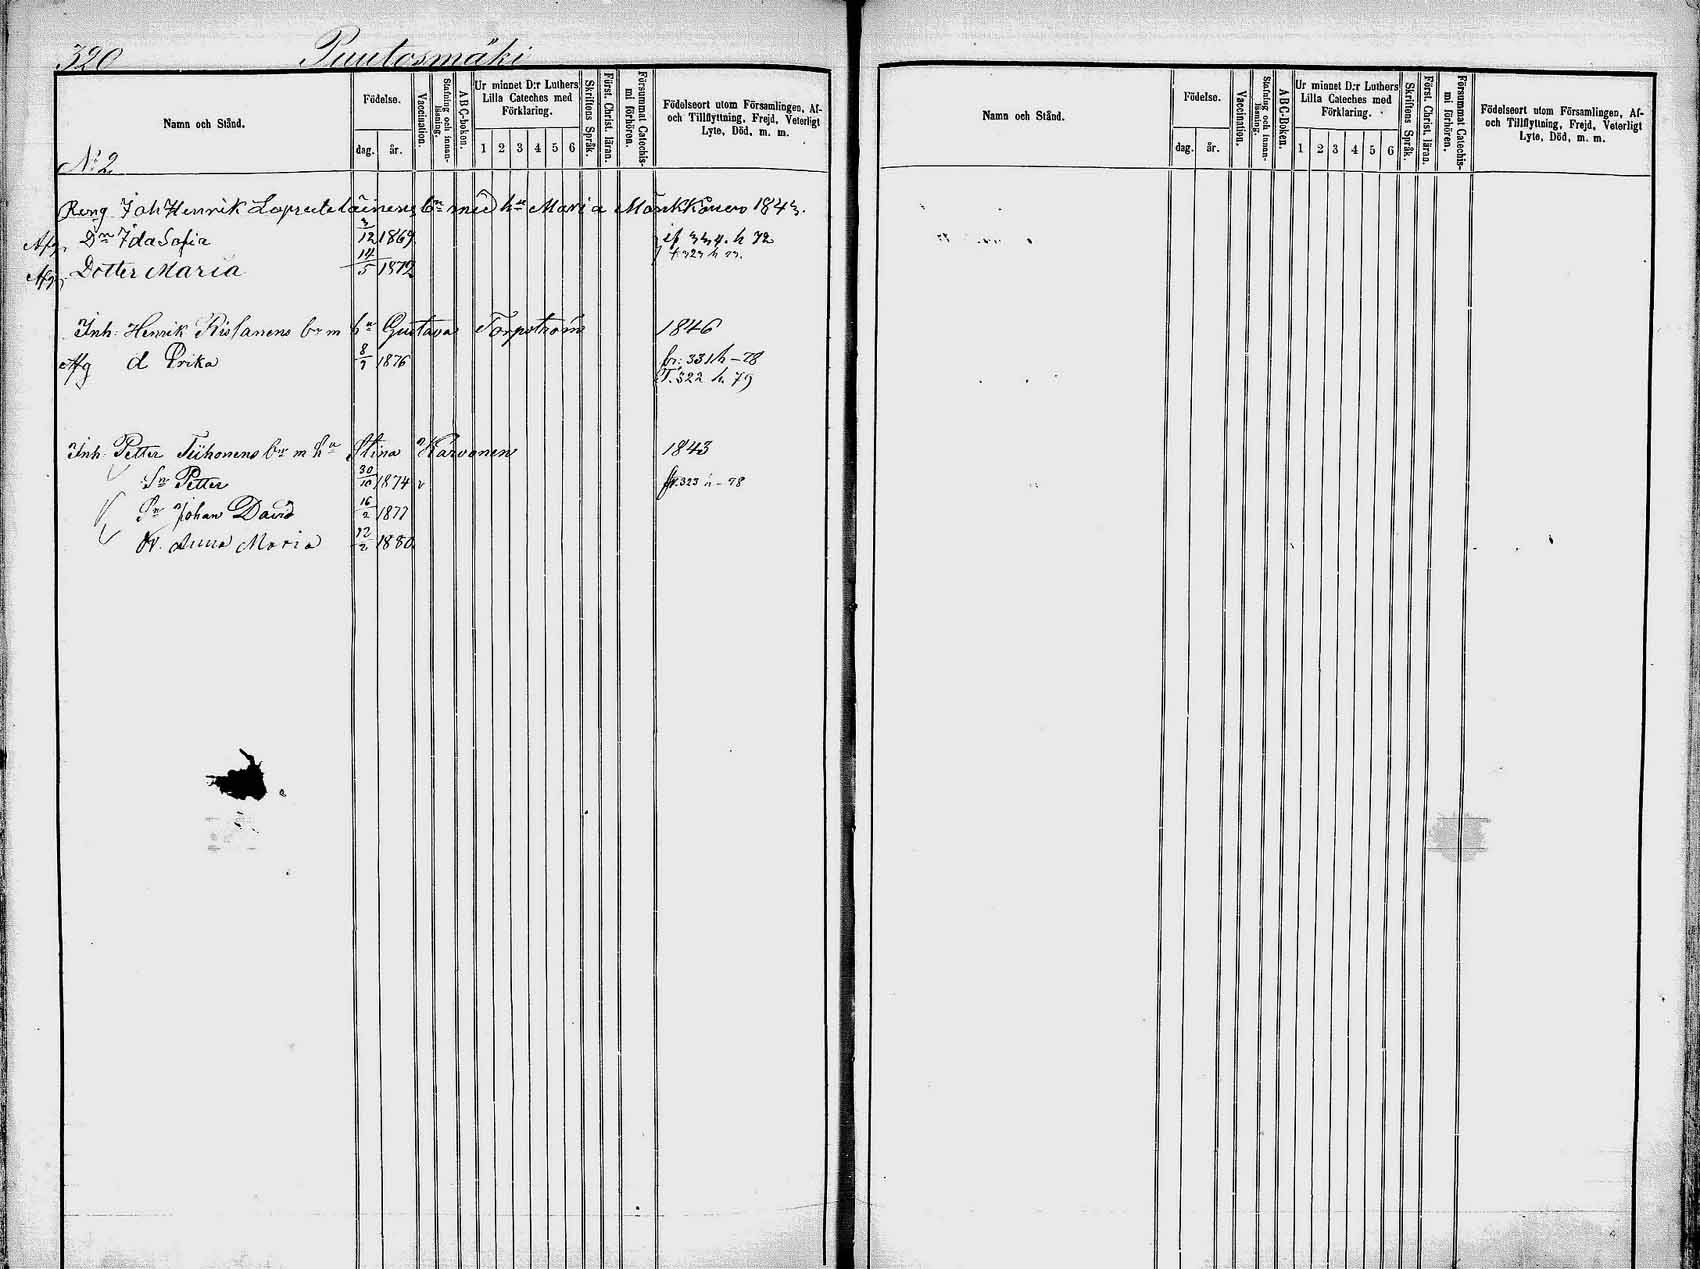 320 Puutosmäki
Namn och Stånd.
Födelse.
dag. år.
Vaccination.
Stafning och innan-läsning.
ABC-boken.
Ur minnet D:r Luthers Lilla Cateches med Förklaring.
1 2 3 4 5 6
Skriftens Språk.
Först. Christ. läran.
Försummat Catechismi förhören.
Födelseort utom Församlingen, Af- och Tillflyttning, Frejd, Veterligt Lyte, Död, m. m.
No 2
Reng Joh Henrik bn med hn Maria Mönkkönen 1843.
Afg. Dn Ida Sofia 3/12 1869 if 334. h 72
Afg. Dotter Maria 14/5 1872 f 323 h
Inh: Henrik Rissanens br m hn Gustava Torpström 1846
Afg d Prika 8/7 1876 br: 331 h-78
T. 322 h. 79
Inh: Petter Tiihonens br m hn Stina Karvonen 1843
Sn Petter 30/10 1874 v fr. 323 h-78
Sn Johan David 16/2 1877
Dr. Anna Maria 12/2 1880
Namn och Stånd.
Födelse.
dag. år.
Vaccination.
Stafning och innan-läsning.
ABC-Boken.
Ur minnet D:r Luthers Lilla Cateches med Förklaring.
1 2 3 4 5 6
Skriftens Språk.
Först. Christ. läran.
Försummat Catechismi förhören.
Födelseort utom Församlingen, Af- och Tillflyttning, Frejd, Veterligt Lyte, Död, m. m.